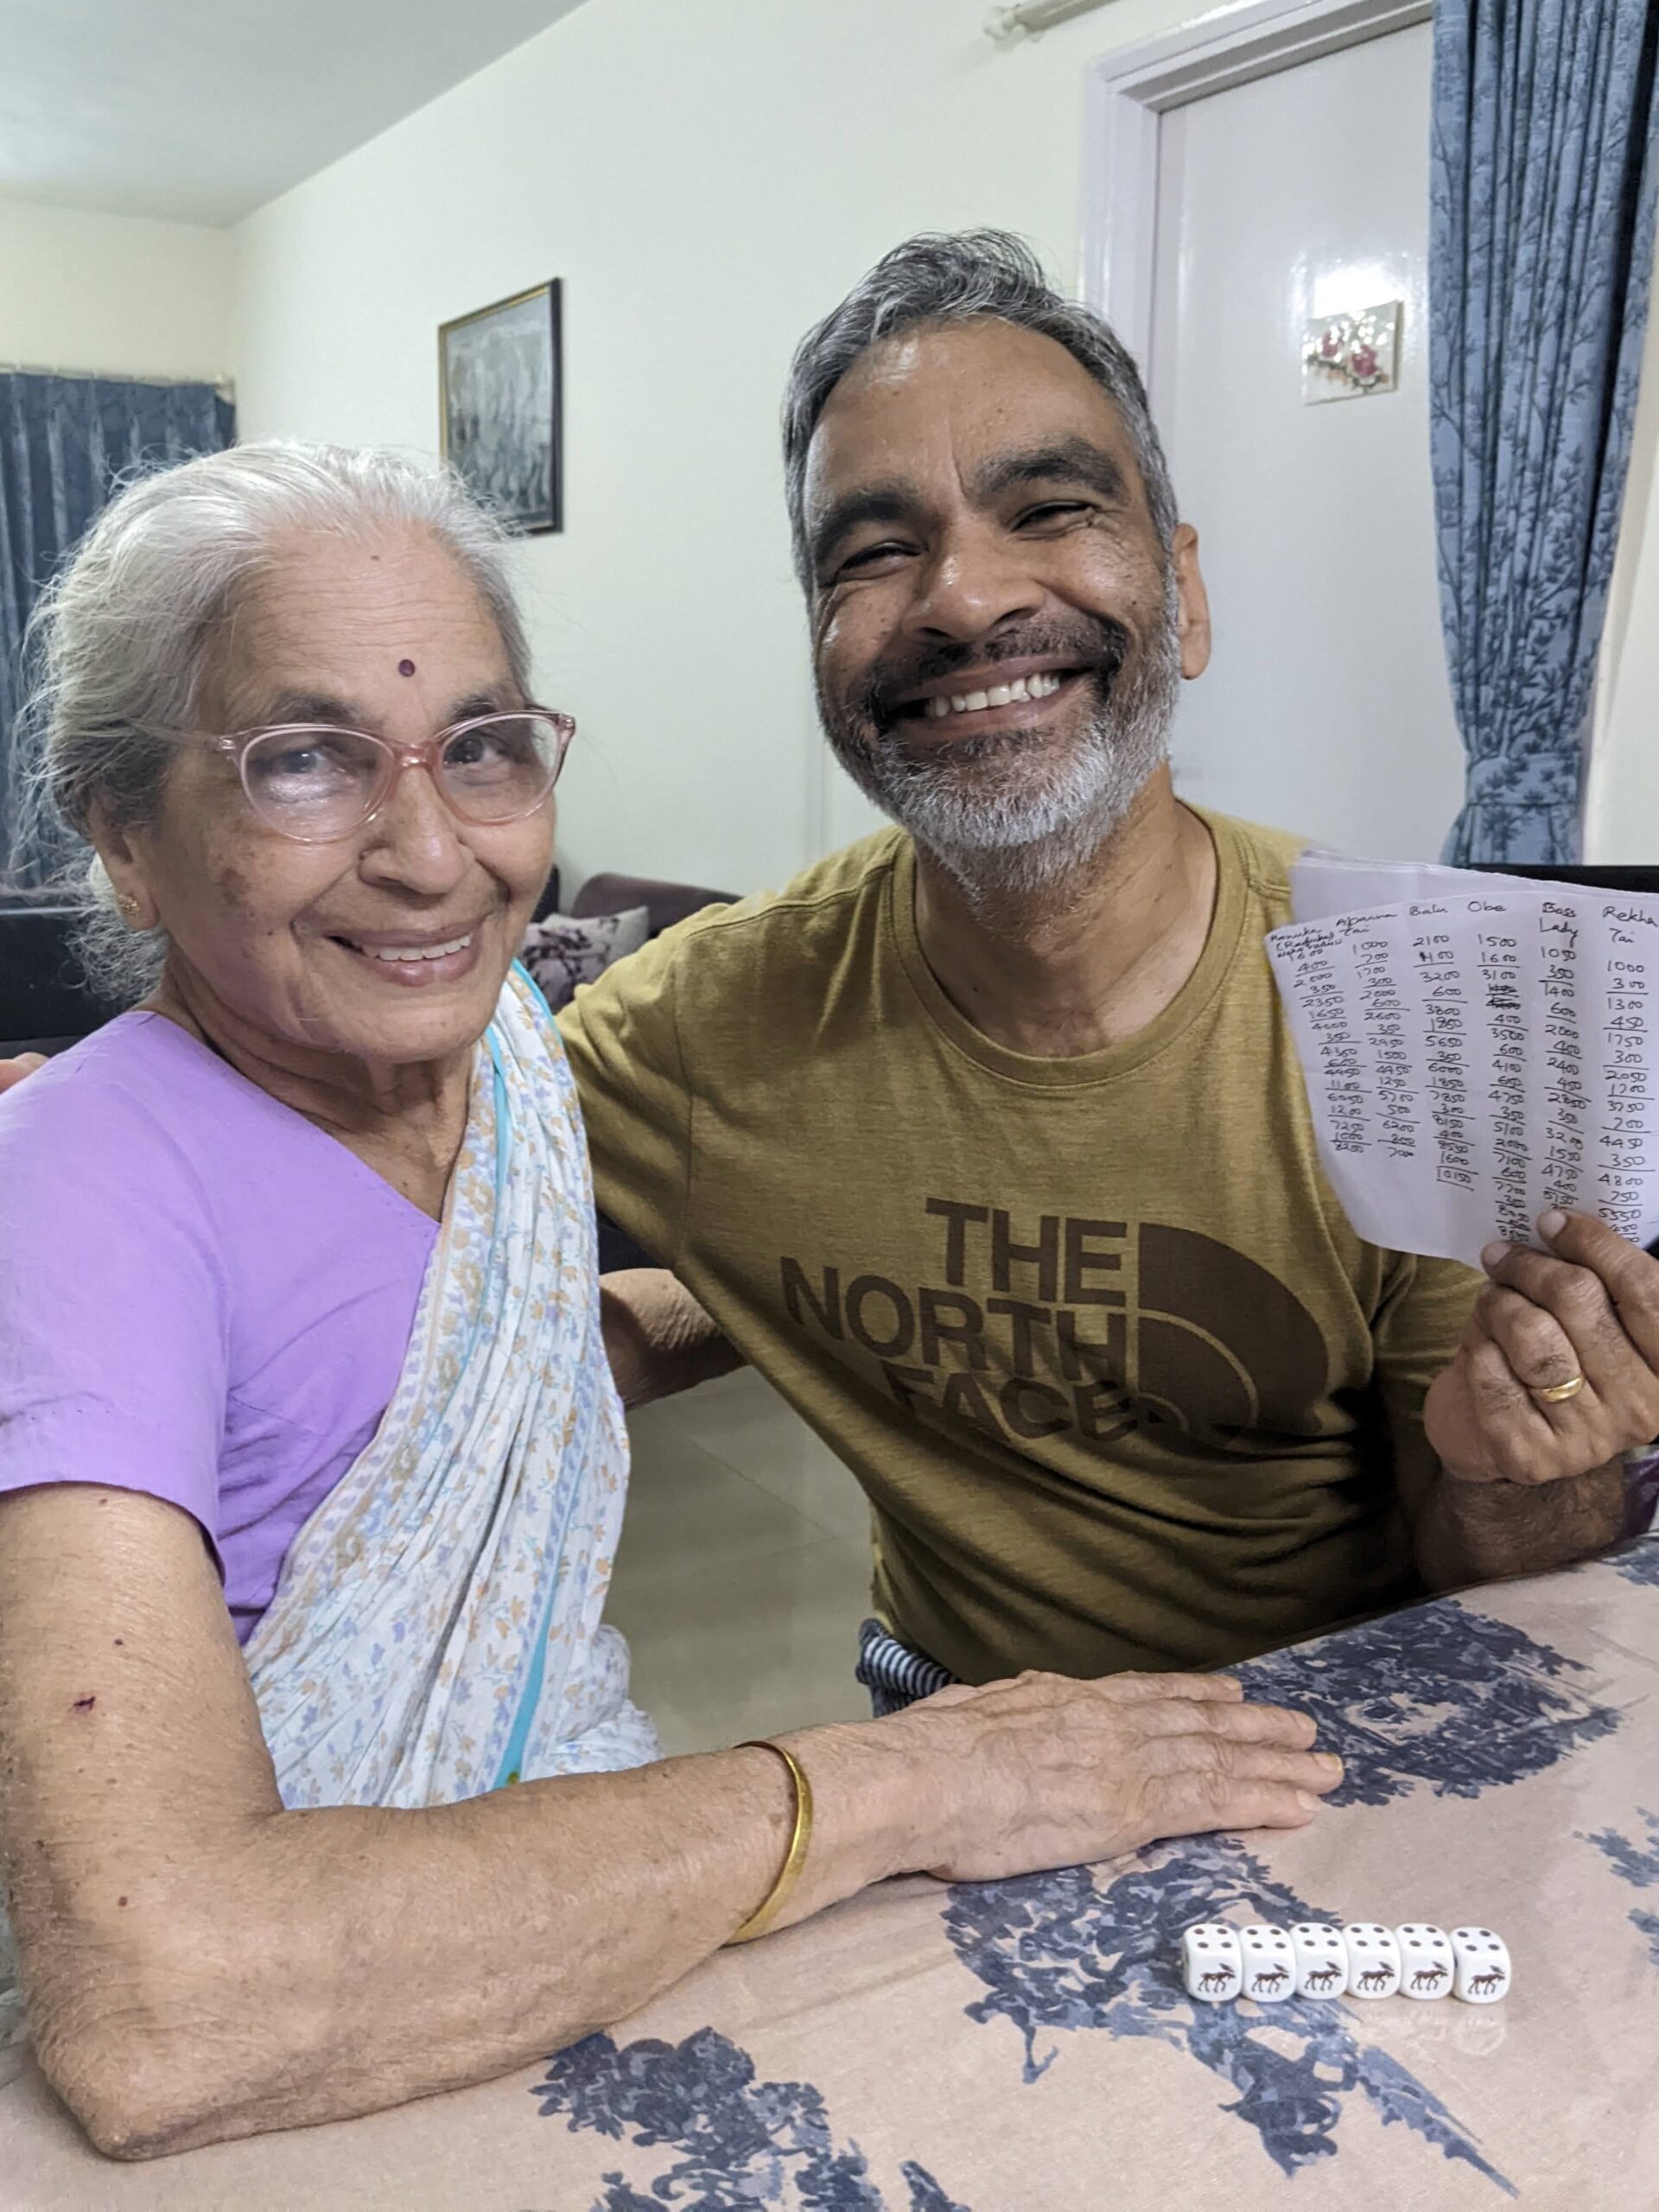 THE
NORTH
FACE
Aparna Balu Obe Boss Rekha
Tai Lady Tai
1000 2100 1500 1050 1000
400 700 1600 350 300
2000 1700 3200 3100 1400 1300
350 300 600 600 450
2350 2000 3800 400 2000 1750
1650 600 1850 3500 400 300
4000 2600 5650 600 2400 2050
350 350 350 4100 450 1700
4350 2950 6000 650 2850 3750
1500 1850 4750 350 700
4450 7850 350 3200 4450
1100 1250 300 5100 1550 350
5700 8150 2000 4750 4800
1200 500 400 7100 400 750
7250 6200 8550 600 5150 5550
1000 800 1600 7700
8250 7000 10150